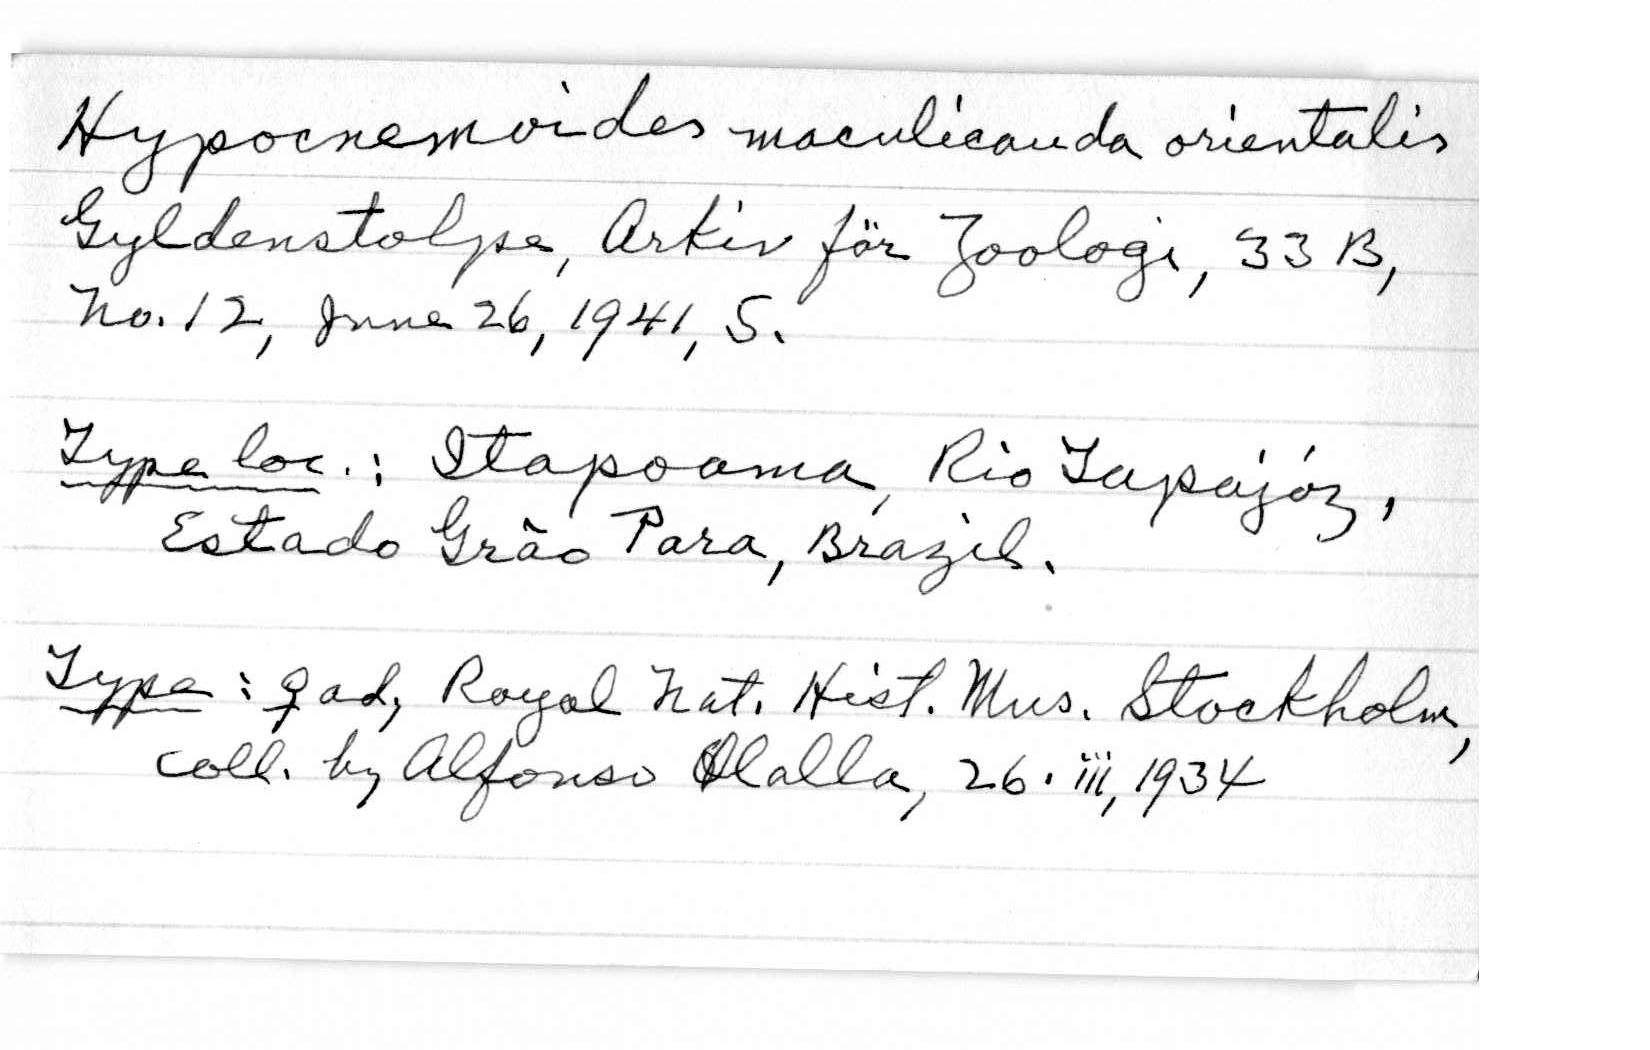 Hypocnemoides maculicauda orientalis
Gyldenstolpe, Arkiv för Zoologi, 33 B,
No. 12, June 26, 1941, 5.
Type loc.: Itapoama, Rio Tapajóz,
Estado Grão Para, Brazil.
Type: ♀ ad, Royal Nat. Hist. Mus. Stockholm,
coll. by Alfonso Olalla, 26. iii, 1934